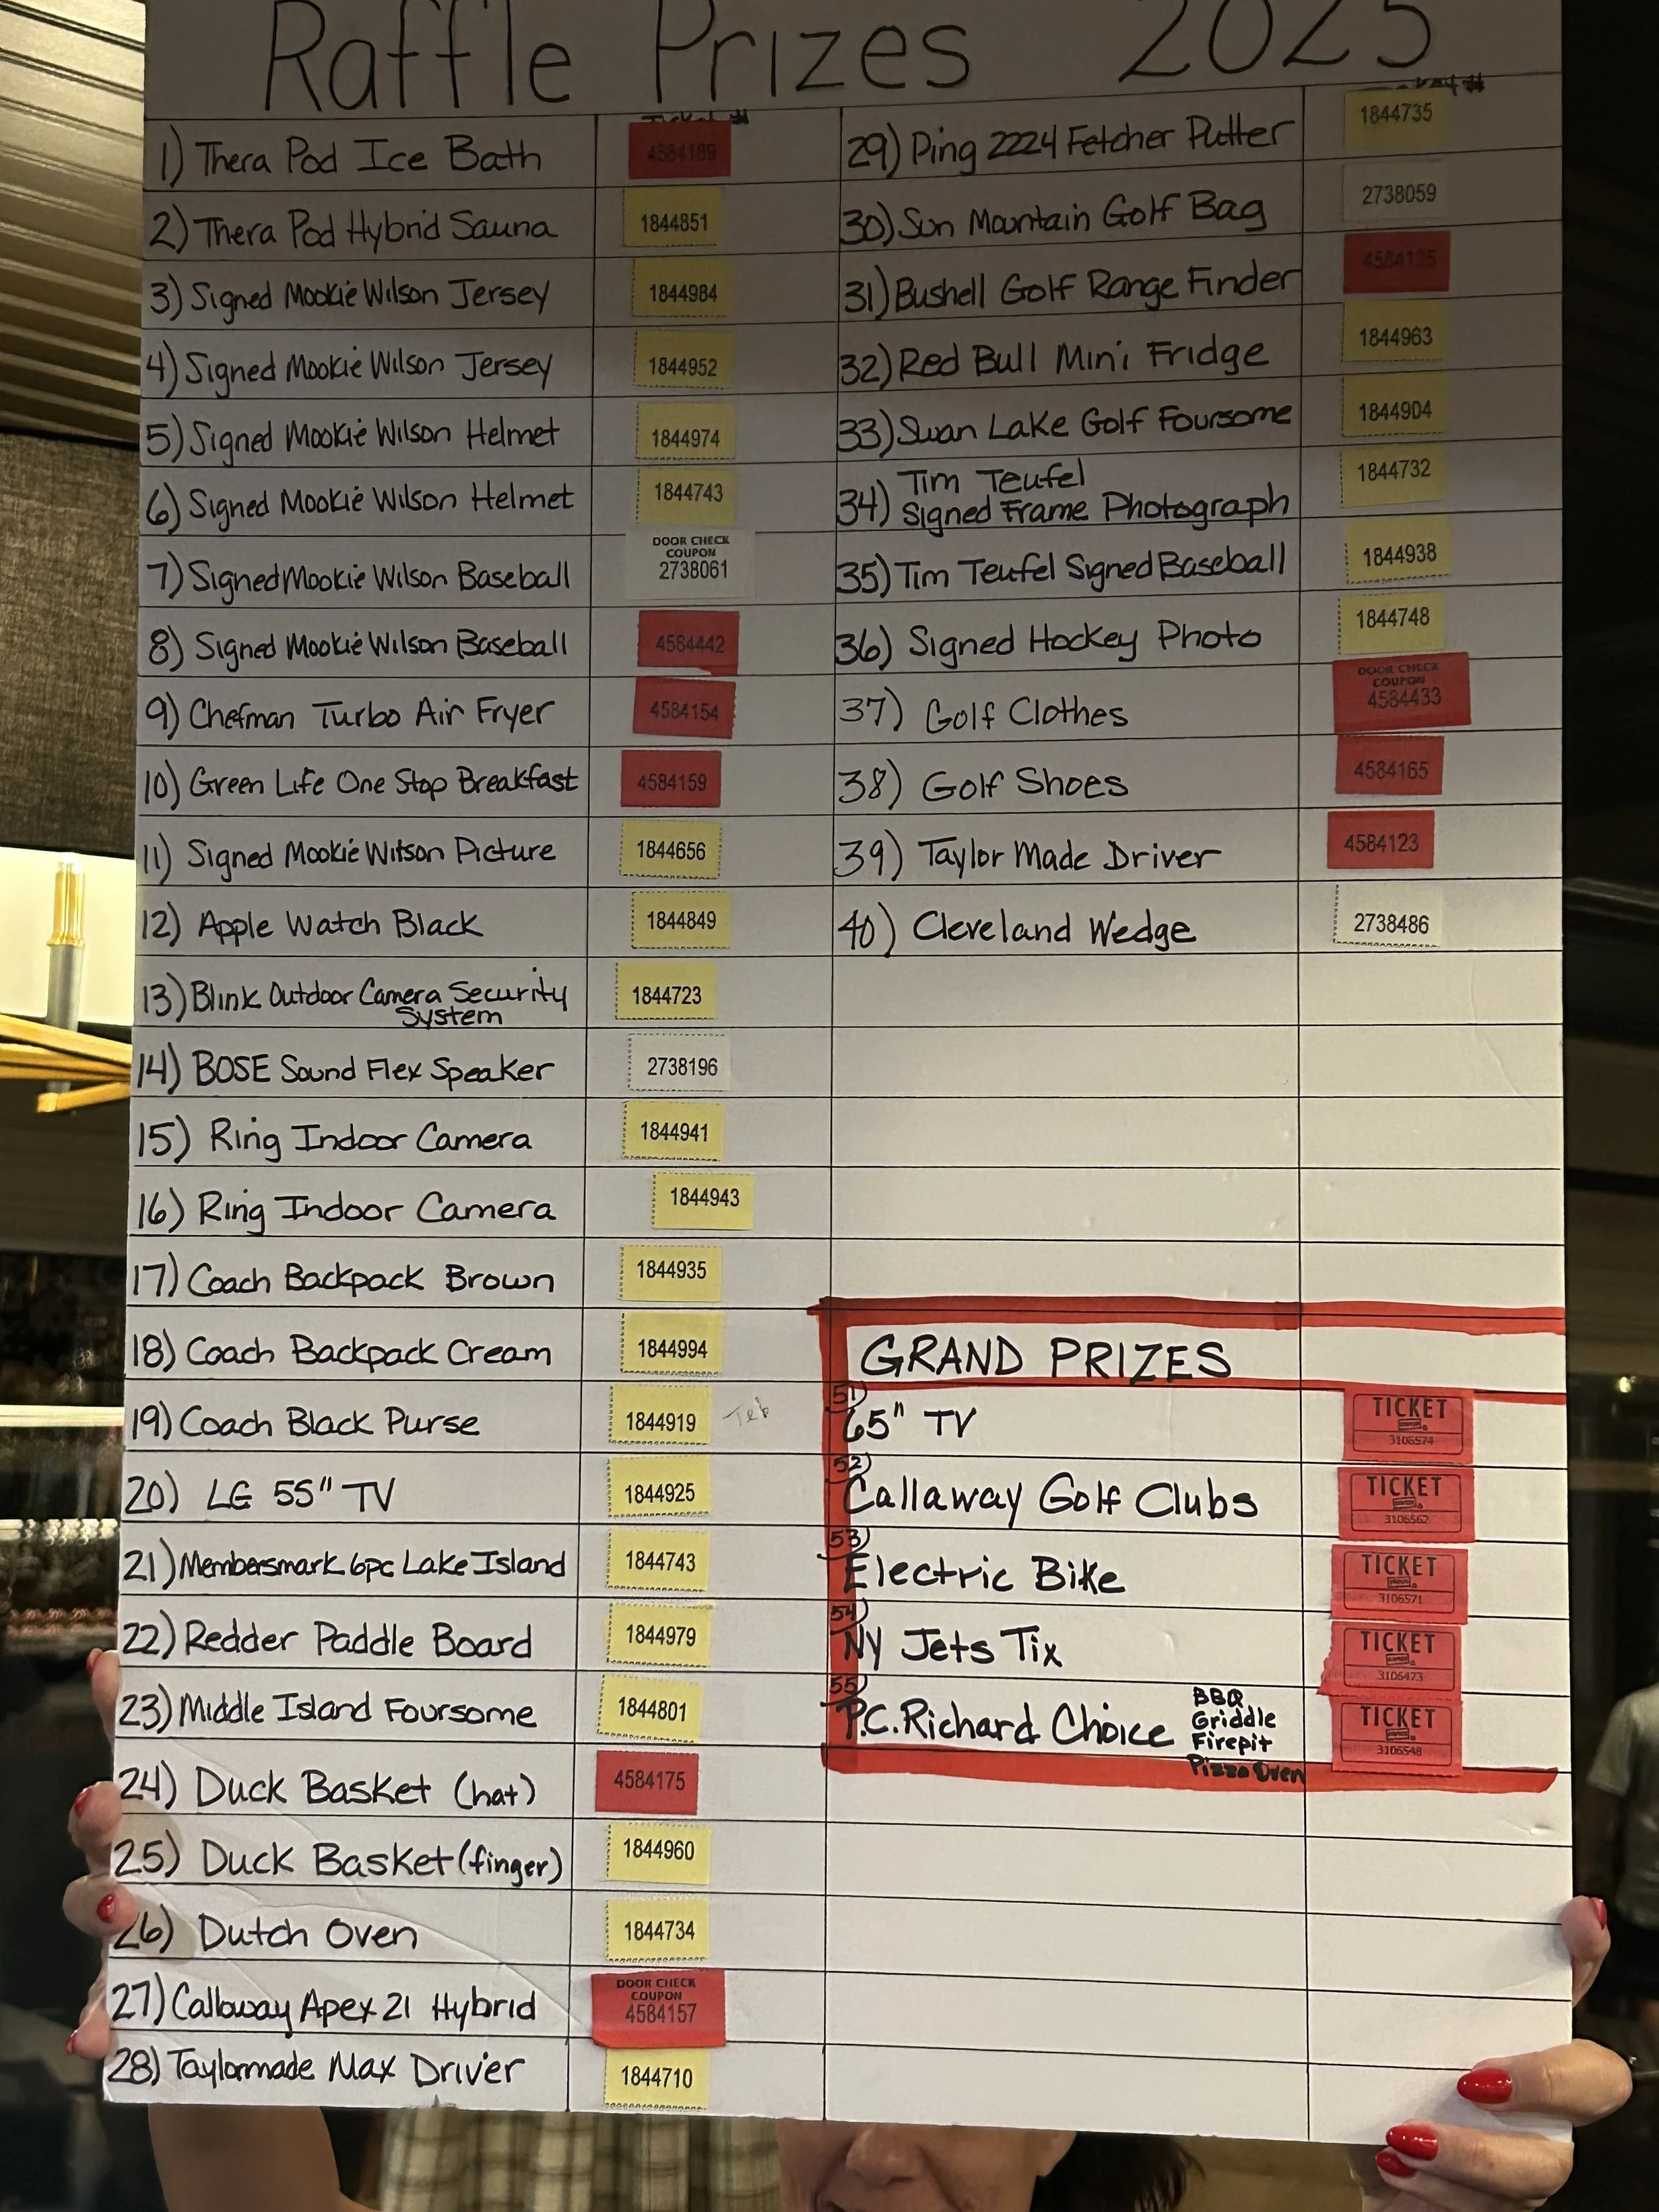 Raffle Prizes 2025
Ticket #
1) Thera Pod Ice Bath 4584169
2) Thera Pod Hybrid Sauna 1844851
3) Signed Mookie Wilson Jersey 1844984
4) Signed Mookie Wilson Jersey 1844952
5) Signed Mookie Wilson Helmet 1844974
6) Signed Mookie Wilson Helmet 1844743
7) Signed Mookie Wilson Baseball
DOOR CHECK
COUPON
2738061
8) Signed Mookie Wilson Baseball 4584442
9) Chefman Turbo Air Fryer 4584154
10) Green Life One Stop Breakfast 4584159
11) Signed Mookie Wilson Picture 1844656
12) Apple Watch Black 1844849
13) Blink Outdoor Camera Security
System
1844723
14) BOSE Sound Flex Speaker 2738196
15) Ring Indoor Camera 1844941
16) Ring Indoor Camera 1844943
17) Coach Backpack Brown 1844935
18) Coach Backpack Cream 1844994
19) Coach Black Purse 1844919
20) LG 55" TV 1844925
21) Membersmark 6pc Lake Island 1844743
22) Redder Paddle Board 1844979
23) Middle Island Foursome 1844801
24) Duck Basket (hat) 4584175
25) Duck Basket (finger) 1844960
26) Dutch Oven 1844734
27) Callaway Apex 21 Hybrid
DOOR CHECK
COUPON
4584157
28) Taylormade Max Driver 1844710
29) Ping 2224 Fetcher Putter 1844735
30) Sun Mountain Golf Bag 2738059
31) Bushell Golf Range Finder
32) Red Bull Mini Fridge 1844963
33) Swan Lake Golf Foursome 1844904
34) Tim Teufel
Signed Frame Photograph
1844732
35) Tim Teufel Signed Baseball 1844938
36) Signed Hockey Photo 1844748
37) Golf Clothes
DOOR CHECK
COUPON
4584433
38) Golf Shoes 4584165
39) Taylor Made Driver 4584123
40) Cleveland Wedge 2738486
GRAND PRIZES
51)
65" TV
TICKET
3106574
52)
Callaway Golf Clubs
TICKET
3106562
53)
Electric Bike
TICKET
3106571
54)
NY Jets Tix
TICKET
3106473
55)
P.C. Richard Choice
BBQ
Griddle
Firepit
Pizza Oven
TICKET
3106548